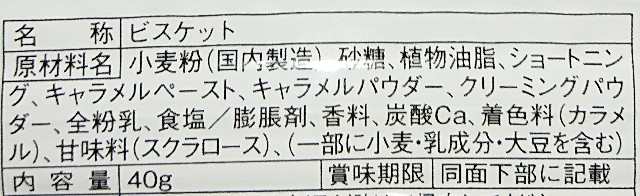 名　称 ビスケット
原材料名 小麦粉(国内製造)、砂糖、植物油脂、ショートニン
グ、キャラメルペースト、キャラメルパウダー、クリーミングパウ
ダー、全粉乳、食塩／膨脹剤、香料、炭酸Ca、着色料(カラメ
ル)、甘味料(スクラロース)、(一部に小麦・乳成分・大豆を含む)
内容量 40g 賞味期限 同面下部に記載